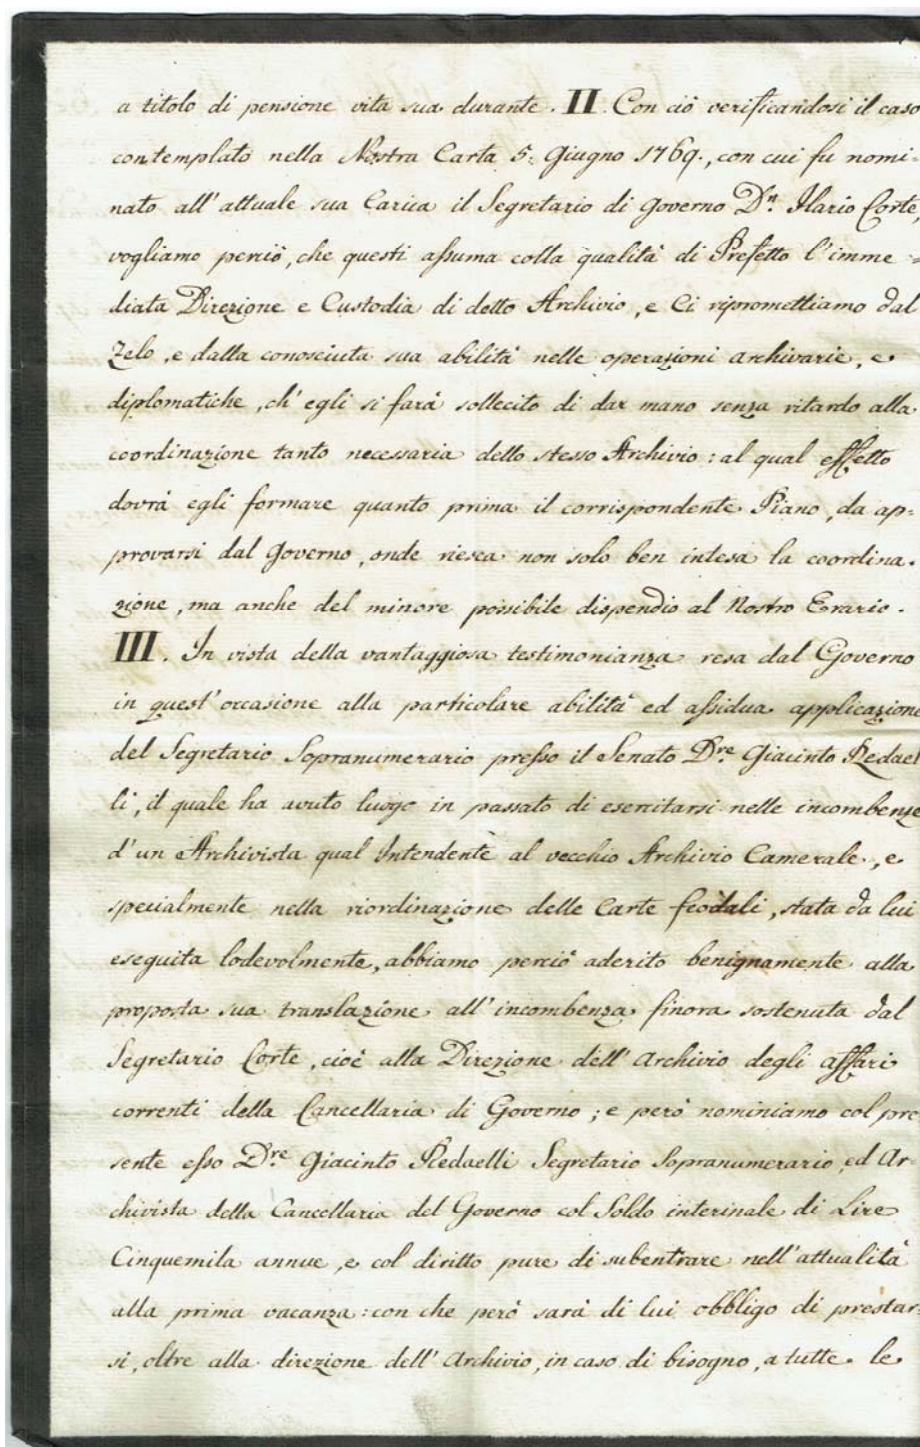 a titolo di pensione vita sua durante. II. Con ciò verificandosi il caso
contemplato nella Nostra Carta 5. Giugno 1769., con cui fu nomi=
nato all'attuale sua Carica il Segretario di Governo Dn. Ilario Corte,
vogliamo perciò, che questi assuma colla qualità di Prefetto l'imme=
diata Direzione e Custodia di detto Archivio, e Ci ripromettiamo dal
Zelo, e dalla conosciuta sua abilità nelle operazioni archivarie, e
diplomatiche, ch'egli si farà sollecito di dar mano senza ritardo alla
coordinazione tanto necessaria dello stesso Archivio: al qual effetto
dovrà egli formare quanto prima il corrispondente Piano, da ap=
provarsi dal Governo, onde riesca non solo ben intesa la coordina=
zione, ma anche del minore possibile dispendio al Nostro Erario.
III. In vista della vantaggiosa testimonianza resa dal Governo
in quest'occasione alla particolare abilità ed assidua applicazione
del Segretario Sopranumerario presso il Senato Dre. Giacinto Redael
li, il quale ha avuto luogo in passato di esercitarsi nelle incombenze
d'un Archivista qual Intendente al vecchio Archivio Camerale, e
specialmente nella riordinazione delle Carte feodali, stata da lui
eseguita lodevolmente, abbiamo perciò aderito benignamente alla
proposta sua translazione all'incombenza finora sostenuta dal
Segretario Corte, cioè alla Direzione dell'Archivio degli affari
correnti della Cancellaria di Governo; e però nominiamo col pre
sente esso Dre. Giacinto Redaelli Segretario Sopranumerario, ed Ar=
chivista della Cancellaria del Governo col Soldo interinale di Lire
Cinquemila annue, e col diritto pure di subentrare nell'attualità
alla prima vacanza: con che però sarà di lui obbligo di prestar=
si, oltre alla direzione dell'Archivio, in caso di bisogno, a tutte le